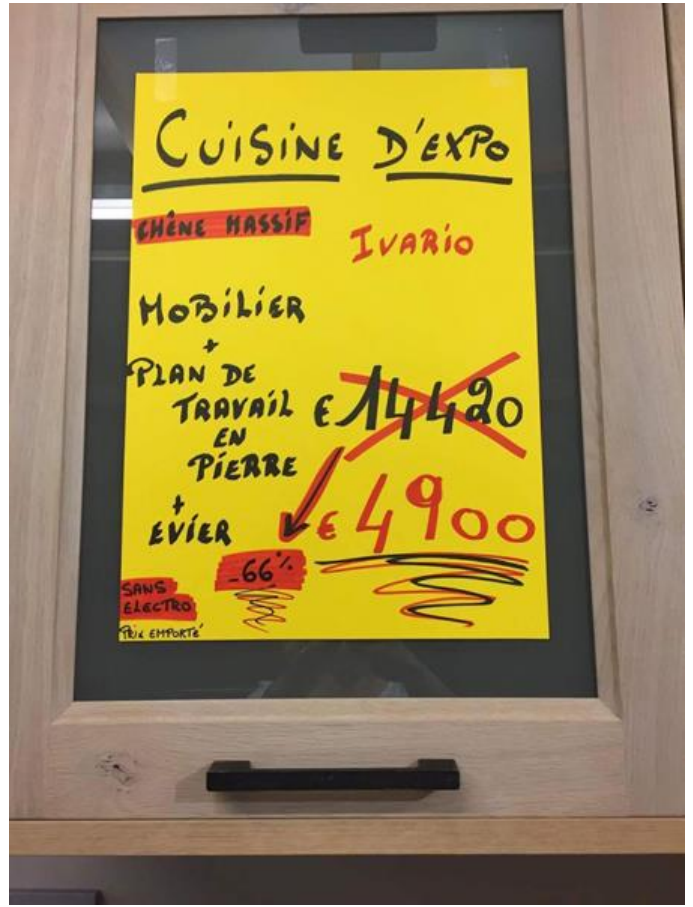 CUiSiNE D'EXPO
CHÊNE MASSiF
IVARiO
MOBiLiER
+
PLAN DE
TRAVAiL
EN
PiERRE
€ 14420
+
EViER
€ 4900
-66%
SANS
ELECTRO
PRiX EMPORTÉ